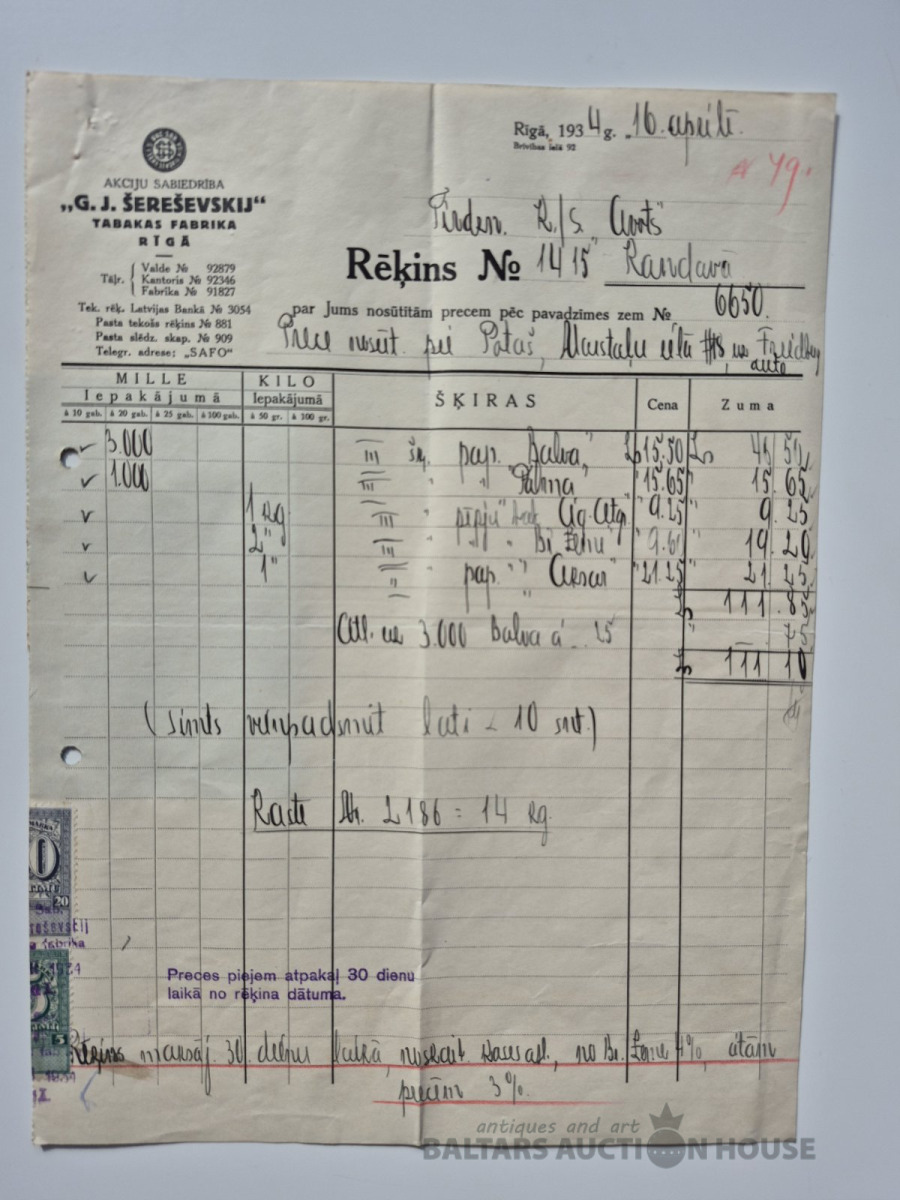 Rīgā, 1934 g. 16. aprīlī.
Brīvības ielā 92
AKCIJU SABIEDRĪBA
„G. J. ŠEREŠEVSKIJ“
TABAKAS FABRIKA
RĪGĀ
№ 49.
R./S. "Avots"
Rēķins № 1415 Kandavā
Tāļr. Valde № 92879
Kantoris № 92346
Fabrika № 91827
Tek. rēķ. Latvijas Bankā № 3054
Pasta tekošs rēķins № 881
Pasta slēdz. skap. № 909
Telegr. adrese: „SAFO“
par Jums nosūtītām precem pēc pavadzīmes zem № 6650.
Prece nosūt. pie Patas, Maustaļu ielā #8, uz
auto
MILLE KILO ŠĶIRAS Cena Zuma
Iepakājumā Iepakājumā
à 10 gab. à 20 gab. à 25 gab. à 100 gab. à 50 gr. à 100 gr.
3.000 III šķ. pap. "Balva" Ls 15.50 Ls 46 50
1.000 III " " "Palma" " 15.65 15. 65
1 kg III " pīpju 9.25 9 25
2 " III " " " 19 20
1 " " " pap. " " 21.25 21. 25
Ls 111. 85
Atl. uz 3.000 Balva à -.25 " 75
Ls 111 10
(simts vienpadsmit lati - 10 snt.)
Kaste Nr. 2186 = 14 kg.
20
fabrika
1934
Preces pieņem atpakaļ 30 dienu
laikā no rēķina dātuma.
5
Rēķins maksāj. 30. dienu laikā, 4%, citām
precēm 3%.
antiques and art
BALTARS AUCTION HOUSE